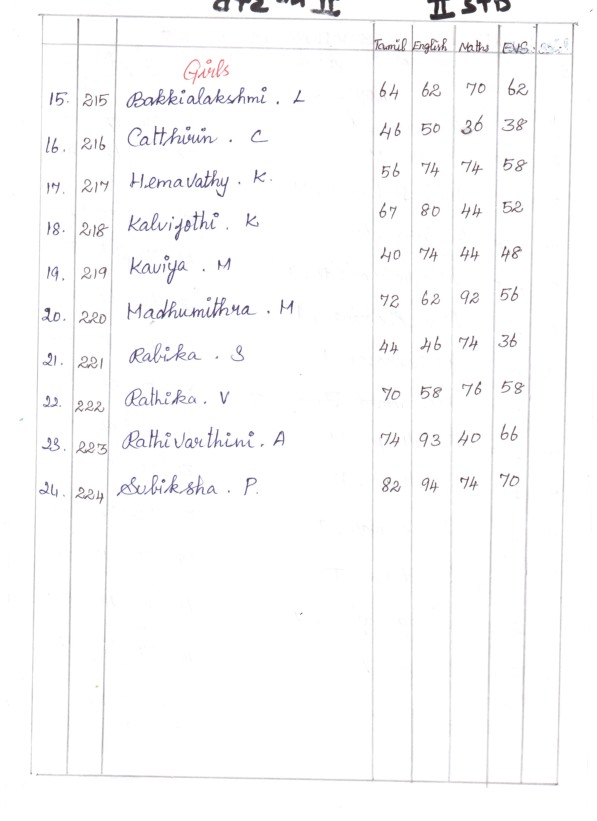 II II STD
Tamil English Maths EVS
Girls
15. 215 Bakkialakshmi . L 64 62 70 62
16. 216 Catthirin . C 46 50 36 38
17. 217 Hemavathy . K. 56 74 74 58
18. 218 Kalvijothi . K 67 80 44 52
19. 219 Kaviya . M 40 74 44 48
20. 220 Madhumithra . M 72 62 92 56
21. 221 Rabika . S 44 46 74 36
22. 222 Rathika . V 70 58 76 58
23. 223 Rathivarthini . A 74 93 40 66
24. 224 Subiksha . P. 82 94 74 70